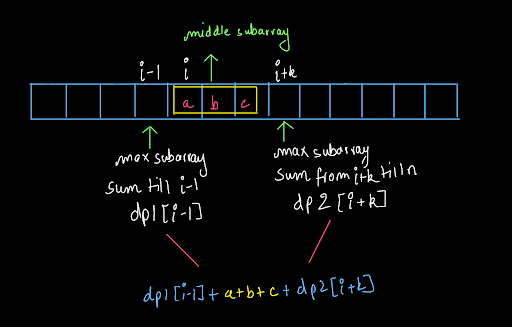 middle subarray
i-1 i i+k
a b c
max subarray
sum till i-1
dp1[i-1]
max subarray
sum from i+k till n
dp2[i+k]
dp1[i-1] + a+b+c + dp2[i+k]